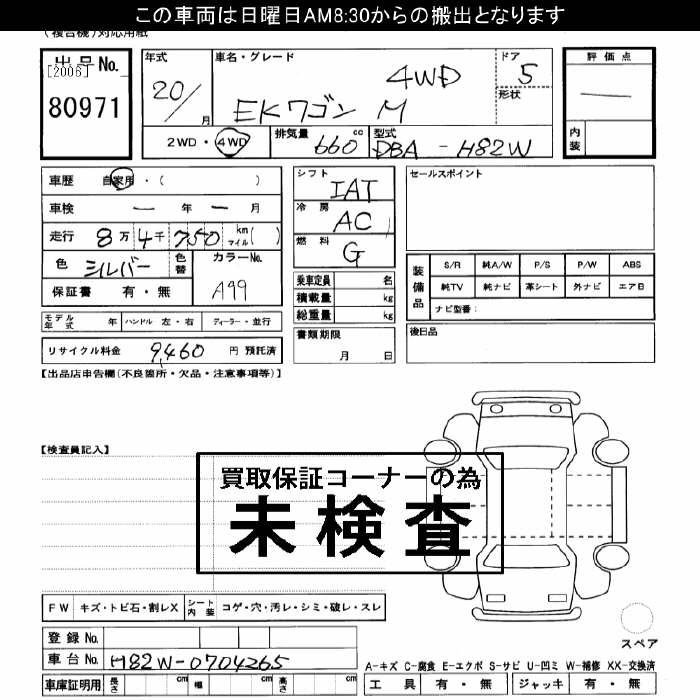 この車両は日曜日AM8:30からの搬出となります
(複合機)対応用紙
出品No.
[2006]
80971
年式
20/
月
車名・グレード
4WD
EKワゴン M
ドア
5
形状
2WD・4WD
排気量
660 cc
型式
DBA - H82W
評価点
―
内装
車歴 自家用・( )
車検 ― 年 ― 月
走行 8万4千750 km マイル( )
色 シルバー
色替
カラーNo.
A99
保証書 有・無
シフト
IAT
冷房
AC
燃料
G
乗車定員 名
積載量 kg
総重量 kg
書類期限
月 日
セールスポイント
装備品
S/R 純A/W P/S P/W ABS
純TV 純ナビ 革シート 外ナビ エアB
ナビ型番:
後日品
モデル年式 年 ハンドル 左・右 ディーラー・並行
リサイクル料金 9,460 円 預託済
【出品店申告欄(不良箇所・欠品・注意事項等)】
【検査員記入】
買取保証コーナーの為
未検査
FW キズ・トビ石・割レX シート内装 コゲ・穴・汚レ・シミ・破レ・スレ
スペア
登録No.
車台No. H82W-0704265
車庫証明用 長さ cm 幅 cm 高さ cm
A-キズ C-腐食 E-エクボ S-サビ U-凹ミ W-補修 XX-交換済
工具 有・無 ジャッキ 有・無